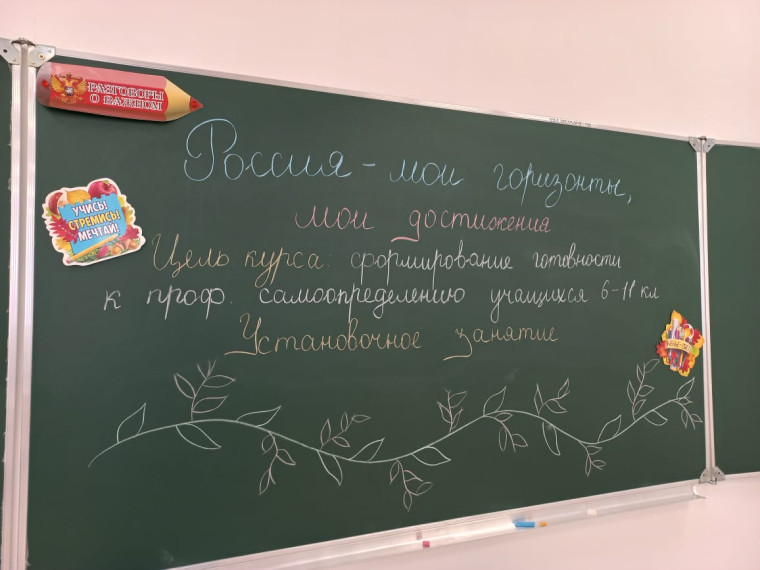 РАЗГОВОРЫ
О ВАЖНОМ
Россия - мои горизонты,
мои достижения
УЧИСЬ!
СТРЕМИСЬ!
МЕЧТАЙ!
Цель курса: сформирование готовности
к проф. самоопределению учащихся 6-11 кл
Установочное занятие